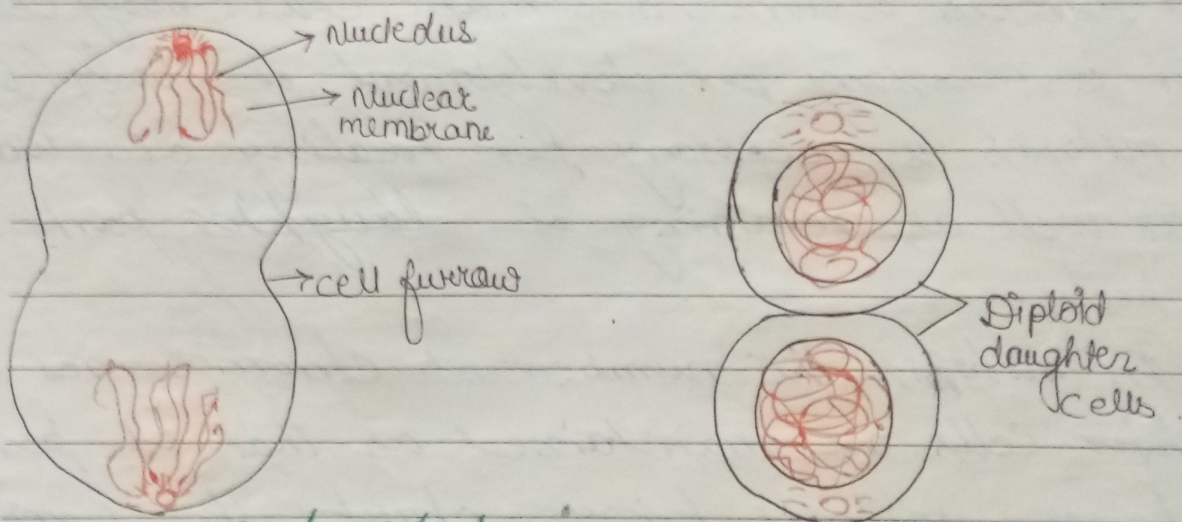 Nucledus
Nuclear
membrane
cell furrow
Diploid
daughter
cells